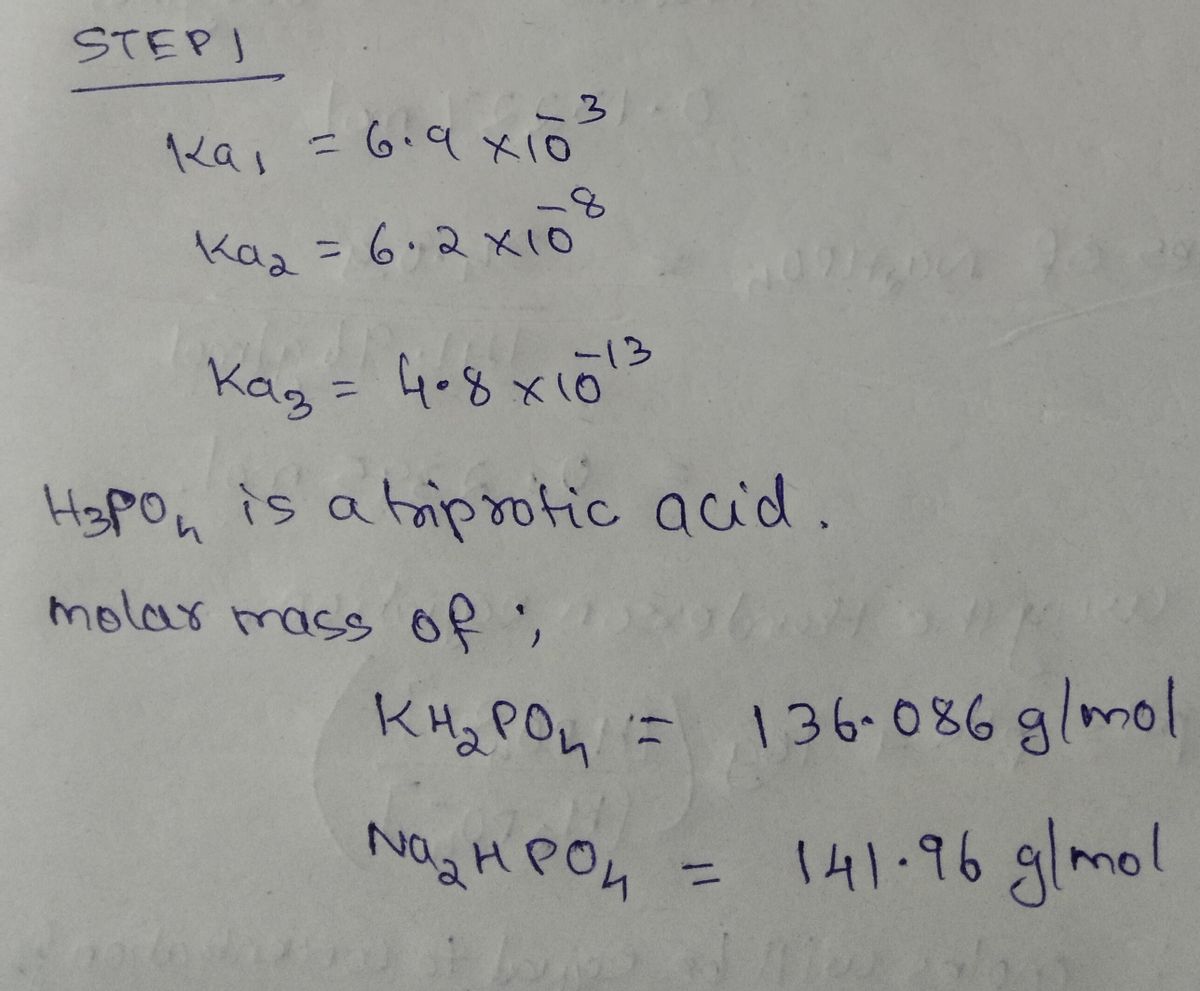 STEP 1
Ka₁ = 6.9 × 10⁻³
Ka₂ = 6.2 × 10⁻⁸
Ka₃ = 4.8 × 10⁻¹³
H₃PO₄ is a triprotic acid.
molar mass of ;
KH₂PO₄ = 136.086 g/mol
Na₂HPO₄ = 141.96 g/mol